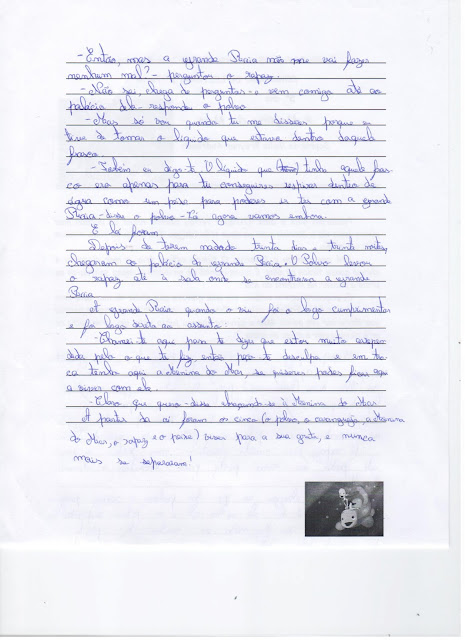 - Então, mas a grande Raia não me vai fazer
nenhum mal? - perguntou o rapaz.
- Não sei, chega de perguntas e vem comigo até ao
palácio dela - respondeu o polvo
- Mas só vou quando tu me disseres porque eu
tive de tomar o líquido que estava dentro daquele
frasco.
- Também eu digo-te O líquido que tinha aquele fras-
co era apenas para tu conseguires respirar dentro de
água como um peixe para poderes ir ter com a grande
Raia - disse o polvo - Tá agora vamos embora.
E lá foram.
Depois de terem nadado trinta dias e trinta noites,
chegaram ao palácio da grande Raia. O Polvo levou
o rapaz até à sala onde se encontrava a grande
Raia
A grande Raia quando o viu foi o logo cumprimentar
e foi logo direta ao assunto:
- Chamei-te aqui para te dizer que estou muito arrepen-
dida pelo o que te fiz, então peço-te desculpa e em tro-
ca tenho aqui a Menina do Mar, se quiseres podes ficar aqui
a viver com ela.
- Claro que quero - disse chegando-se à Menina do Mar
A partir daí foram os cinco (o polvo, o caranguejo, a Menina
do Mar, o rapaz e o peixe) viver para a sua gruta, e nunca
mais se separaram!